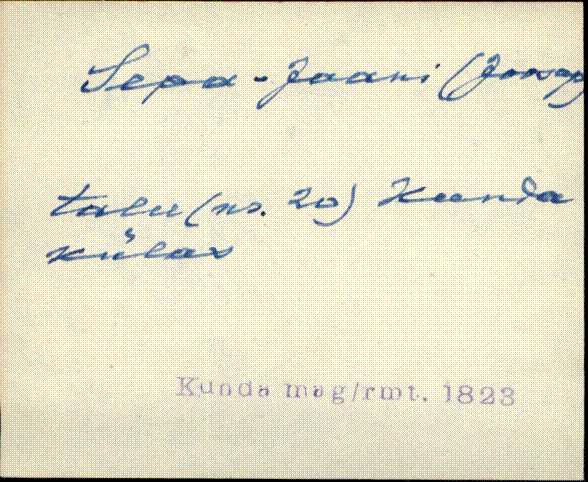 Sepa-Jaani (Joosep
talu (nr. 20) Kunda
külas
Kunda mag/rmt. 1823